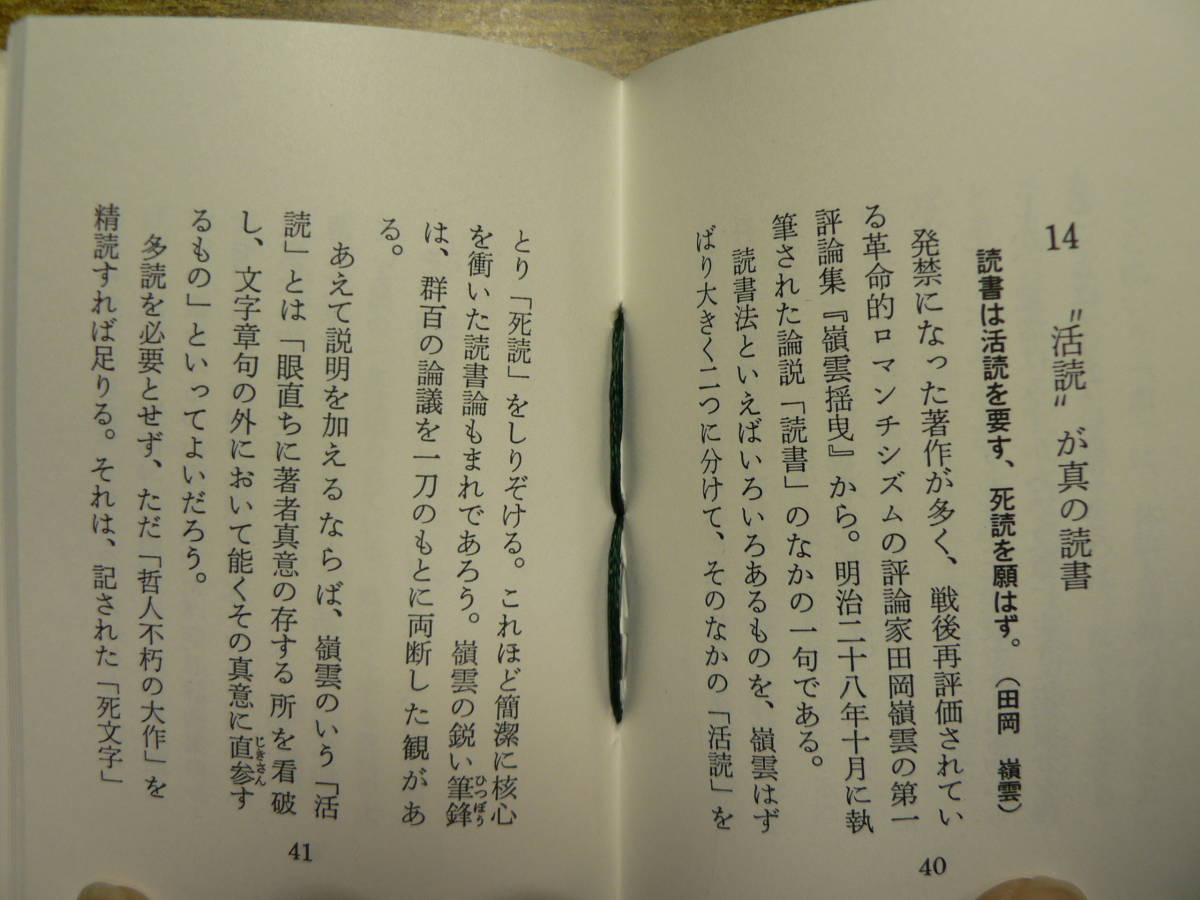 14　〝活読〟が真の読書
読書は活読を要す、死読を願はず。（田岡　嶺雲）
発禁になった著作が多く、戦後再評価されてい
る革命的ロマンチシズムの評論家田岡嶺雲の第一
評論集『嶺雲揺曳』から。明治二十八年十月に執
筆された論説「読書」のなかの一句である。
読書法といえばいろいろあるものを、嶺雲はず
ばり大きく二つに分けて、そのなかの「活読」を
40
とり「死読」をしりぞける。これほど簡潔に核心
を衝いた読書論もまれであろう。嶺雲の鋭い筆鋒
ひつぽう
は、群百の論議を一刀のもとに両断した観があ
る。
あえて説明を加えるならば、嶺雲のいう「活
読」とは「眼直ちに著者真意の存する所を看破
し、文字章句の外において能くその真意に直参す
じきさん
るもの」といってよいだろう。
多読を必要とせず、ただ「哲人不朽の大作」を
精読すれば足りる。それは、記された「死文字」
41